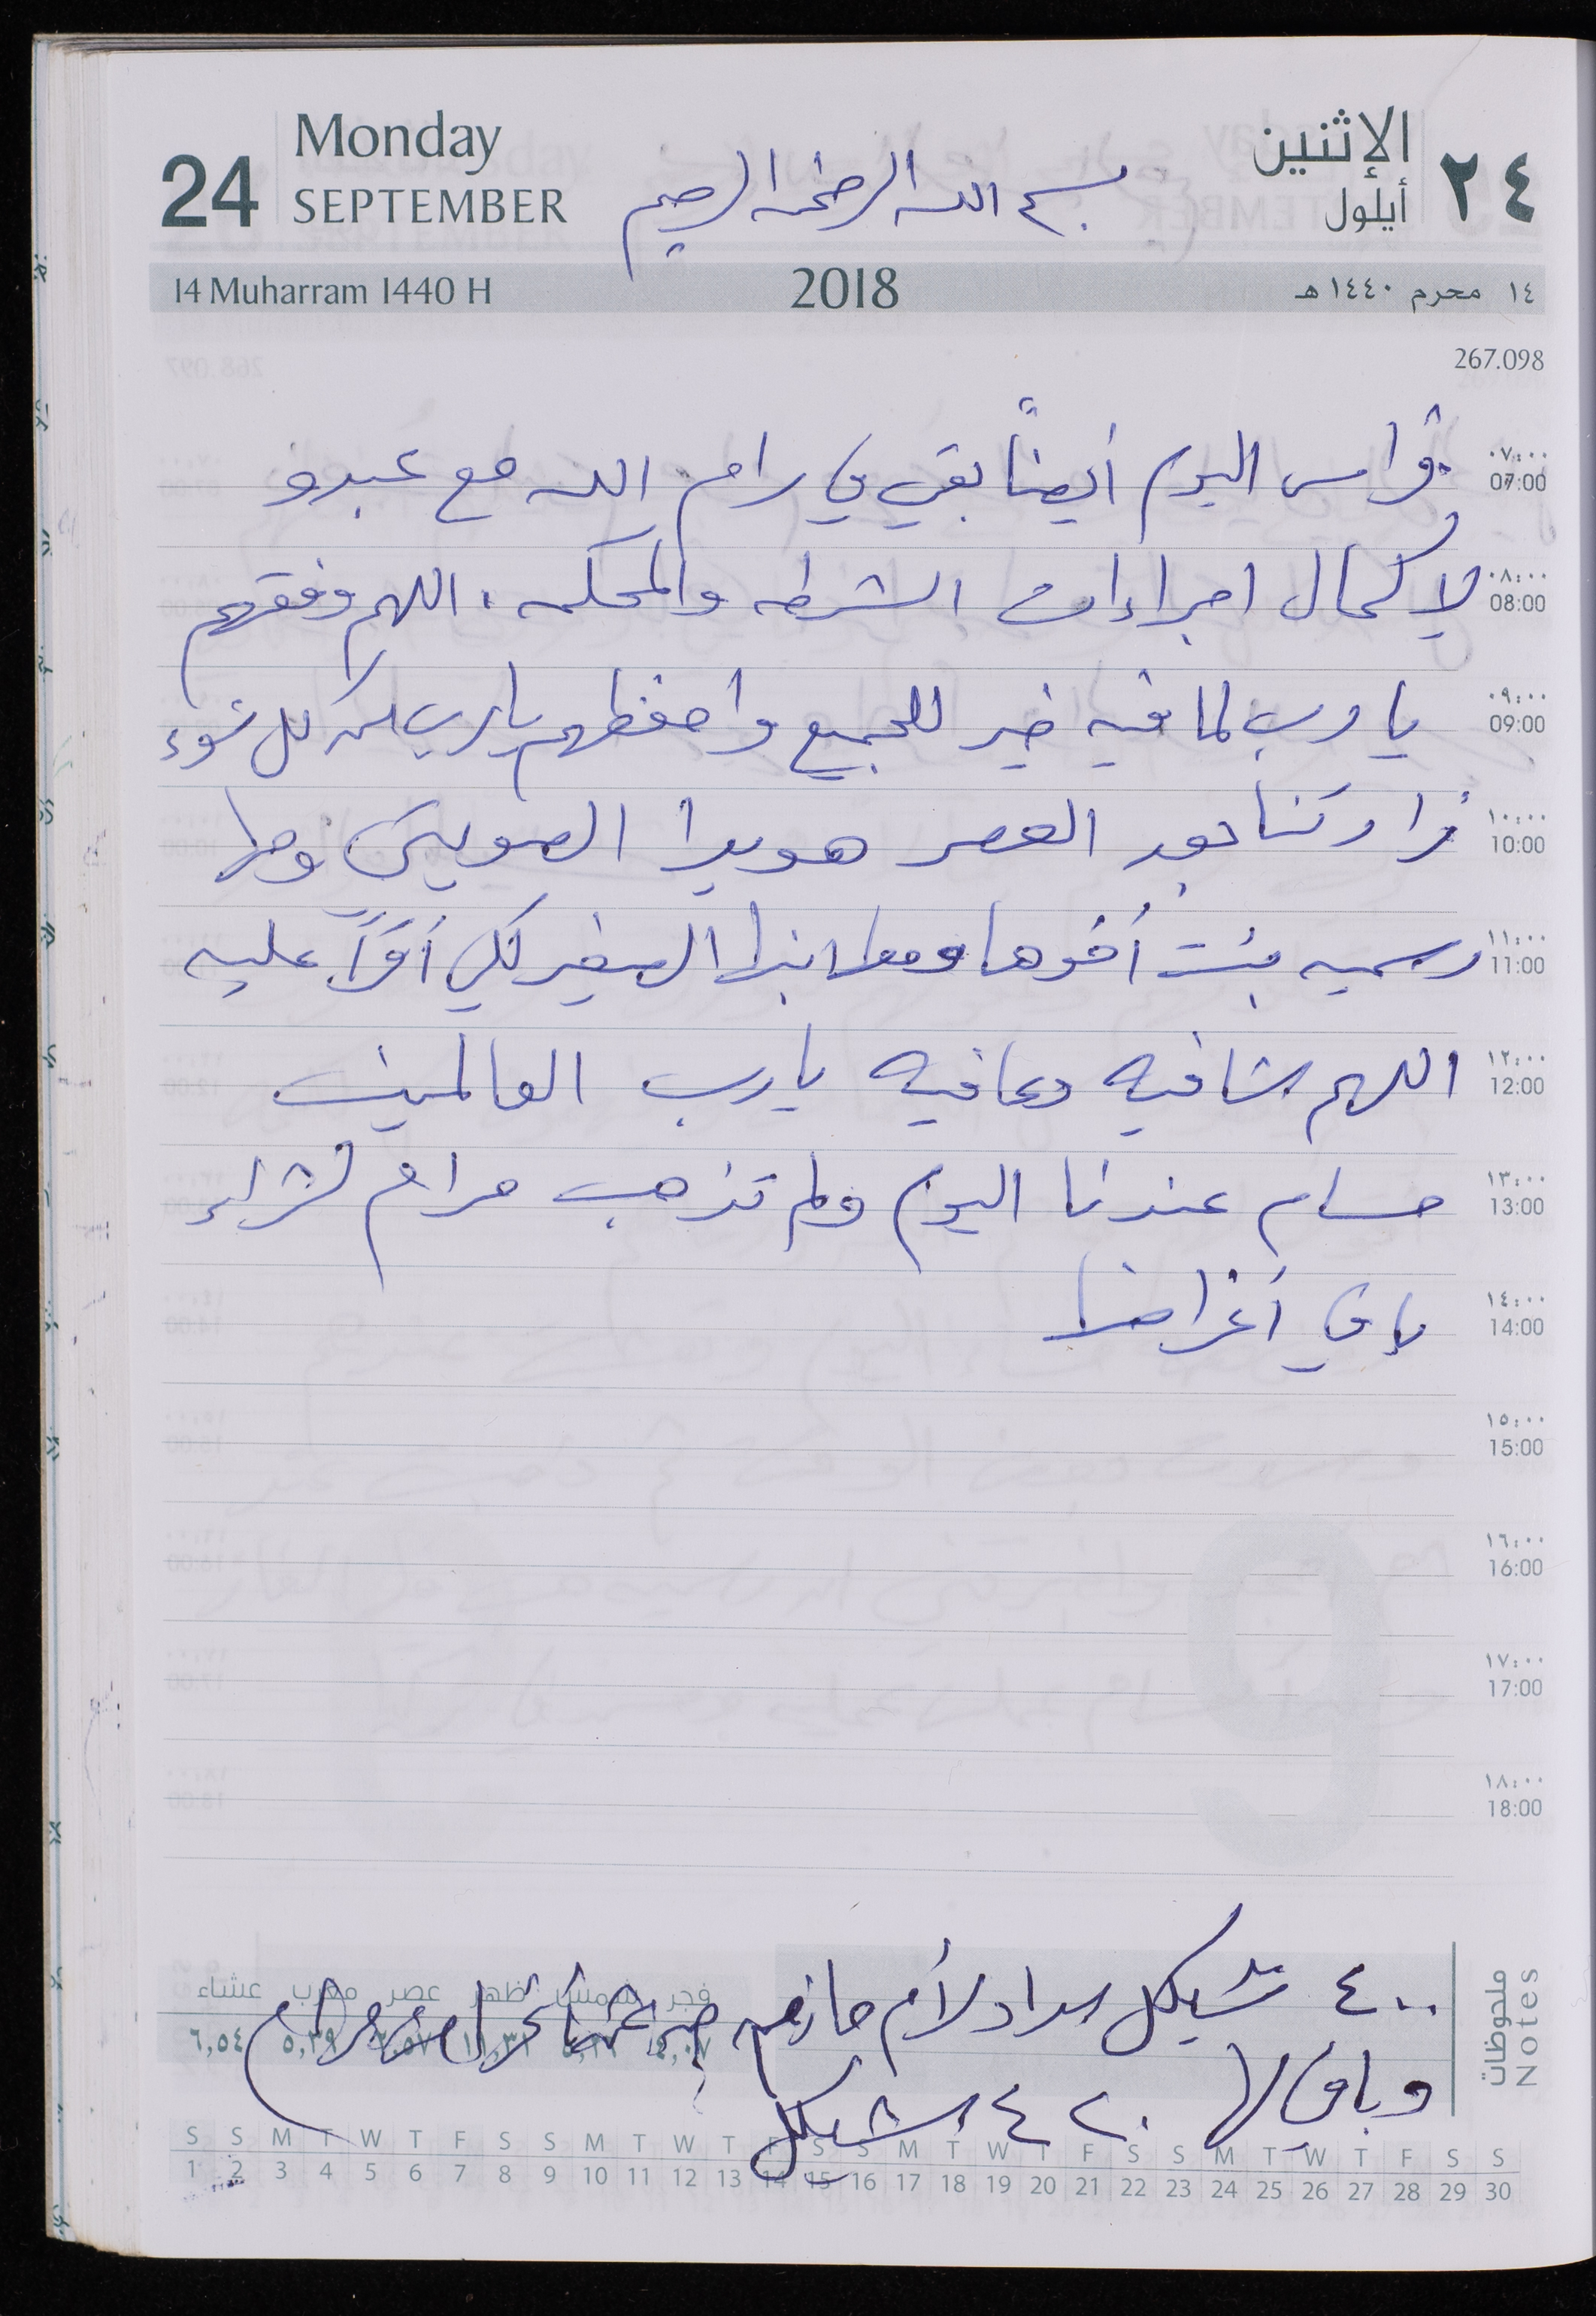 24 Monday SEPTEMBER
الإثنين أيلول ٢٤
بسم الله الرحمن الرحيم
14 Muharram 1440 H 2018 ١٤ محرم ١٤٤٠ هـ
267.098
٠٧:٠٠ 07:00
فراس اليوم أيضاً بقي في رام الله مع عبدو
٠٨:٠٠ 08:00
لإكمال اجراءات الشرطه والمحكمه. اللهم وفقهم
٠٩:٠٠ 09:00
يا رب لما فيه خير للجميع واحفظهم يا رب من كل سوء
١٠:٠٠ 10:00
زارتنا بعد العصر هويدا الصويص ومعها
١١:٠٠ 11:00
رسميه بنت أخوها ومعها ابنها الصغير لكي أقرأ عليه
١٢:٠٠ 12:00
اللهم شافيه وعافيه يا رب العالمين
١٣:٠٠ 13:00
حسام عندنا اليوم ولم تذهب مرام لشراء
١٤:٠٠ 14:00
باقي أغراضها
١٥:٠٠ 15:00
١٦:٠٠ 16:00
١٧:٠٠ 17:00
١٨:٠٠ 18:00
ملحوظات Notes
فجر شمس ظهر عصر مغرب عشاء
٤٠٠ شيكل سداد لأم حازم من مرام
٥,٣٩ ٦,٥٤
وباقي لها ٤٢٠ شيكل
S S M T W T F S S M T W T F S S M T W T F S S M T W T F S S
1 2 3 4 5 6 7 8 9 10 11 12 13 14 15 16 17 18 19 20 21 22 23 24 25 26 27 28 29 30